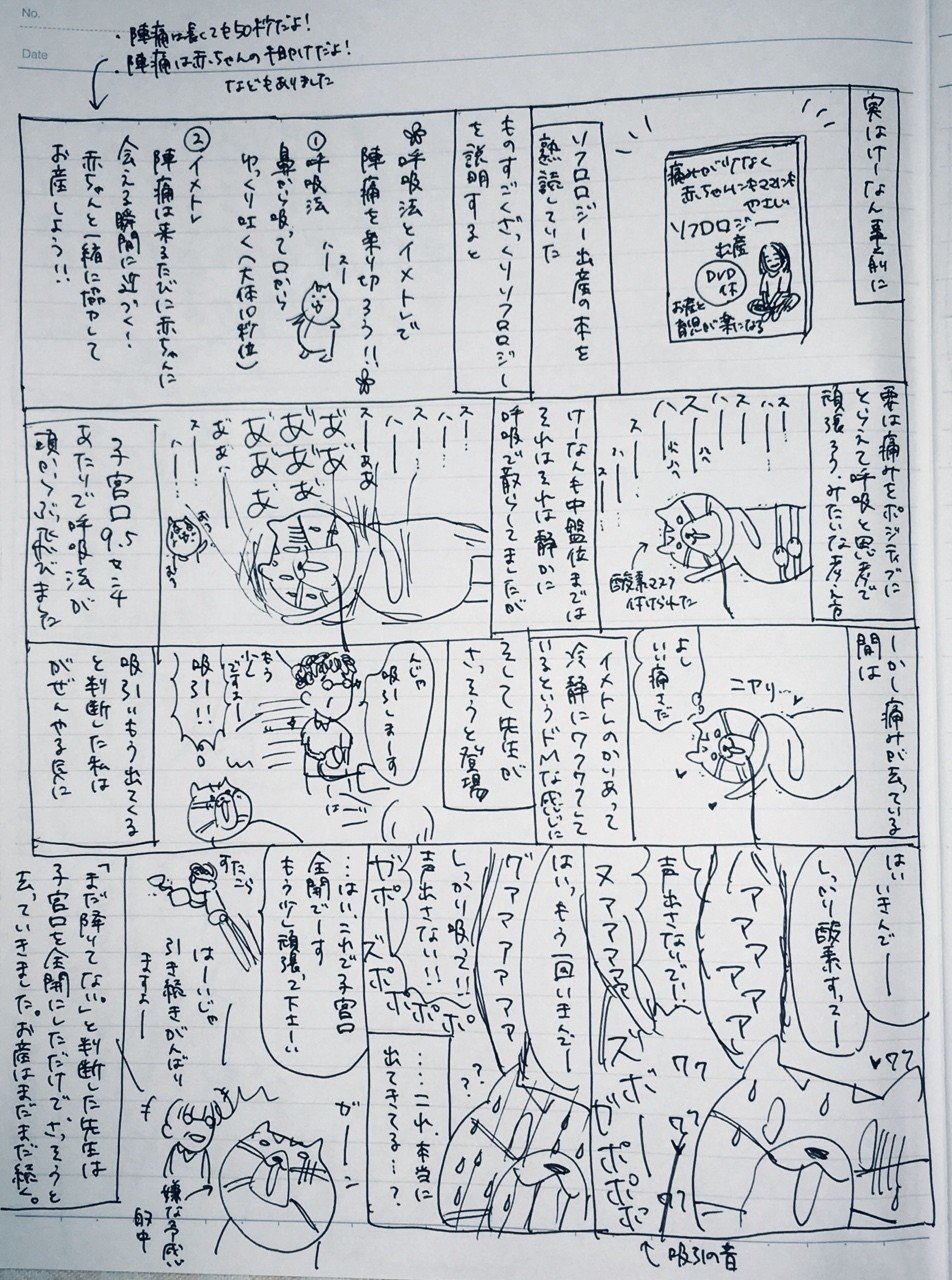 No.
Date
・陣痛は長くても50秒だよ！
・陣痛は赤ちゃんの千日やけだよ！
などもありました
実はけーなん事前に
痛みが少なく
赤ちゃんにもママにも
やさしい
ソフロロジー
出産
DVD
付
お産と
育児が楽になる
ソフロロジー出産の本を
熟読していた
ものすごくざっくりソフロロジー
を説明すると
呼吸法とイメトレで
陣痛を乗り切ろう！！
①呼吸法
鼻から吸って口から
ゆっくり吐く（大体10秒位）
スー
ハー
②イメトレ
陣痛は来るたびに赤ちゃんに
会える瞬間に近づく！
赤ちゃんと一緒に協力して
お産しよう！！
要は痛みをポジティブに
とらえて呼吸と思考で
頑張ろうみたいな考え方
酸素マスク
付けられた
けーなんも中盤位までは
それはそれは静かに
呼吸で散らしてましたが
子宮口9.5センチ
あたりで呼吸法が
頭からぶっ飛びました
しかし痛みが去っている
間は
よし
いい痛みだ
ニヤリ…
イメトレのかいあって
冷静にワクワクして
いるというドMな感じに
そして先生が
さっそうと登場
んじゃ
吸引しまーす
はーい
もう
少し
ですよー
吸引！！
吸引＝もう出てくる
と判断した私は
がぜんやる気に
はい
いきんでー
しっかり酸素すってー
ワワ
アアアアアア
声出さないでー！
ヌアアアアア
ズボーーー
ガポポポポ
↑吸引の音
はいっもう一回いきんでー
ヴアアアアアア
しっかり吸って！！
声出さない！！
ズポポポポ
ガポーー
？？
……これ、本当に
出てきてる…？
…はい、これで子宮口
全開でーす
もう少し頑張って下さーい
ガーーン
すたこら
はーいじゃ
引き続きがんばり
ますよー
嫌な予感
的中
「まだ降りてない。」と判断した先生は
子宮口を全開にしただけで、さっそうと
去っていきました。お産はまだまだ続く。